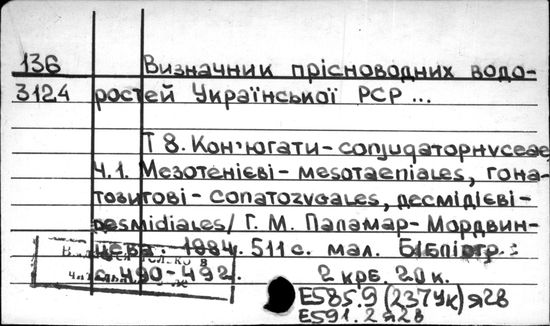 136 Визначник прісноводних водо-
3124 ростей Української РСР ...
Т 8. Кон'югати - conjugatophyceae
Ч.1. Мезотенієві - mesotaeniales, гона-
тозигові - gonatozygales, десмідієві -
desmidiales / Г. М. Паламар-Мордвин-
цева. 1984. 511 с. мал. Бібліогр.:
с. 490-492. 2 крб. 20 к.
Е585.9 (237Ук) я28
Е591.2 я28